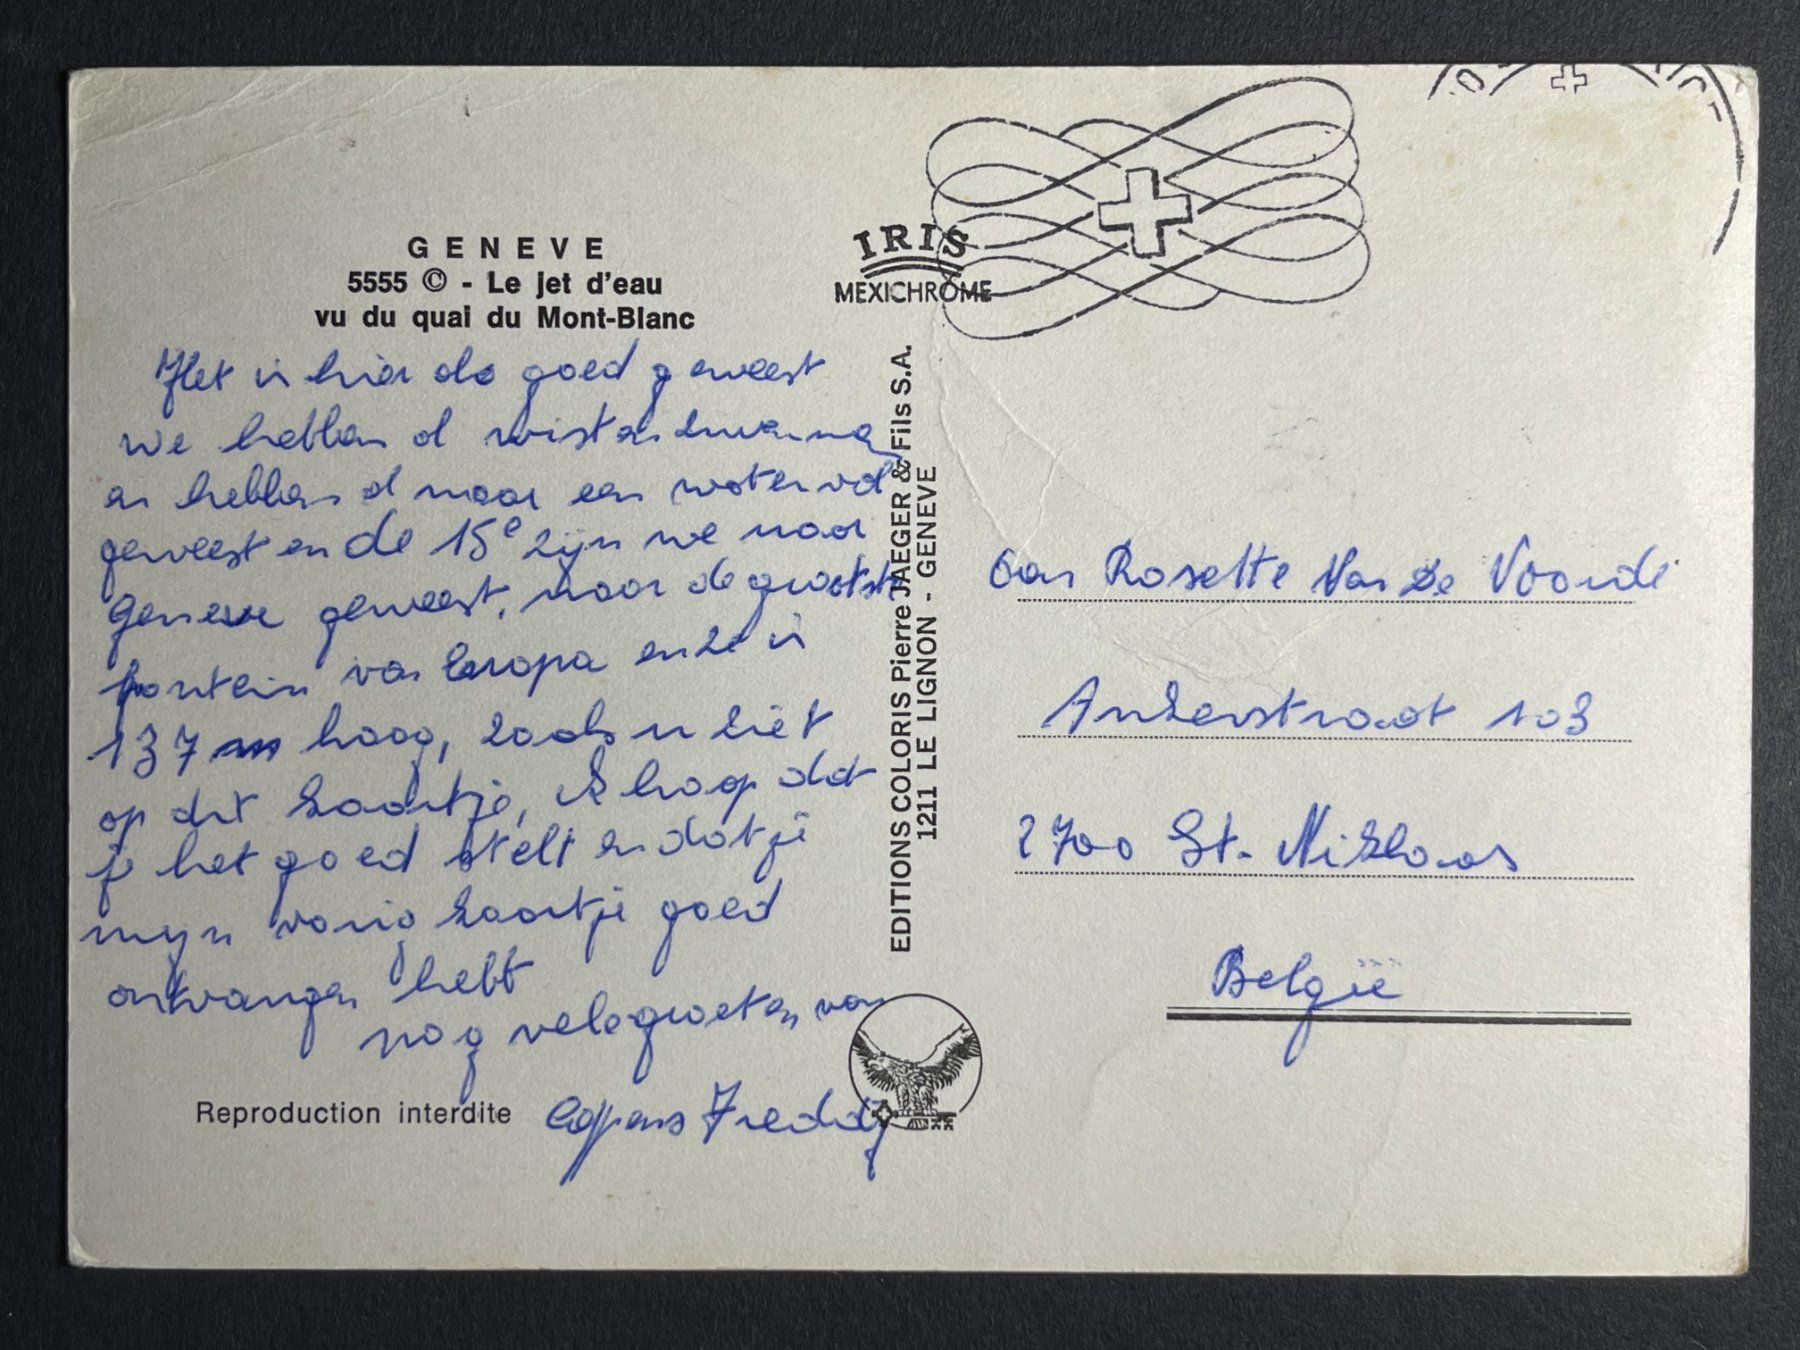 GENEVE
5555 © - Le jet d'eau
vu du quai du Mont-Blanc
Het is hier al goed geweest
we hebben al
en hebben al naar een waterval
geweest en de 15e zijn we naar
Geneve geweest, naar de grootste
fontein van Europa en ze is
137 m hoog, zoals u ziet
op dit kaartje, ik hoop dat
je het goed stelt en dat je
mijn vorig kaartje goed
ontvangen hebt
nog vele groeten van
Coppens Freddy
Reproduction interdite
IRIS
MEXICHROME
EDITIONS COLORIS Pierre JAEGER & Fils S.A.
1211 LE LIGNON - GENEVE
Aan Rosette Van De Voorde
Ankerstraat 103
2700 St. Niklaas
België